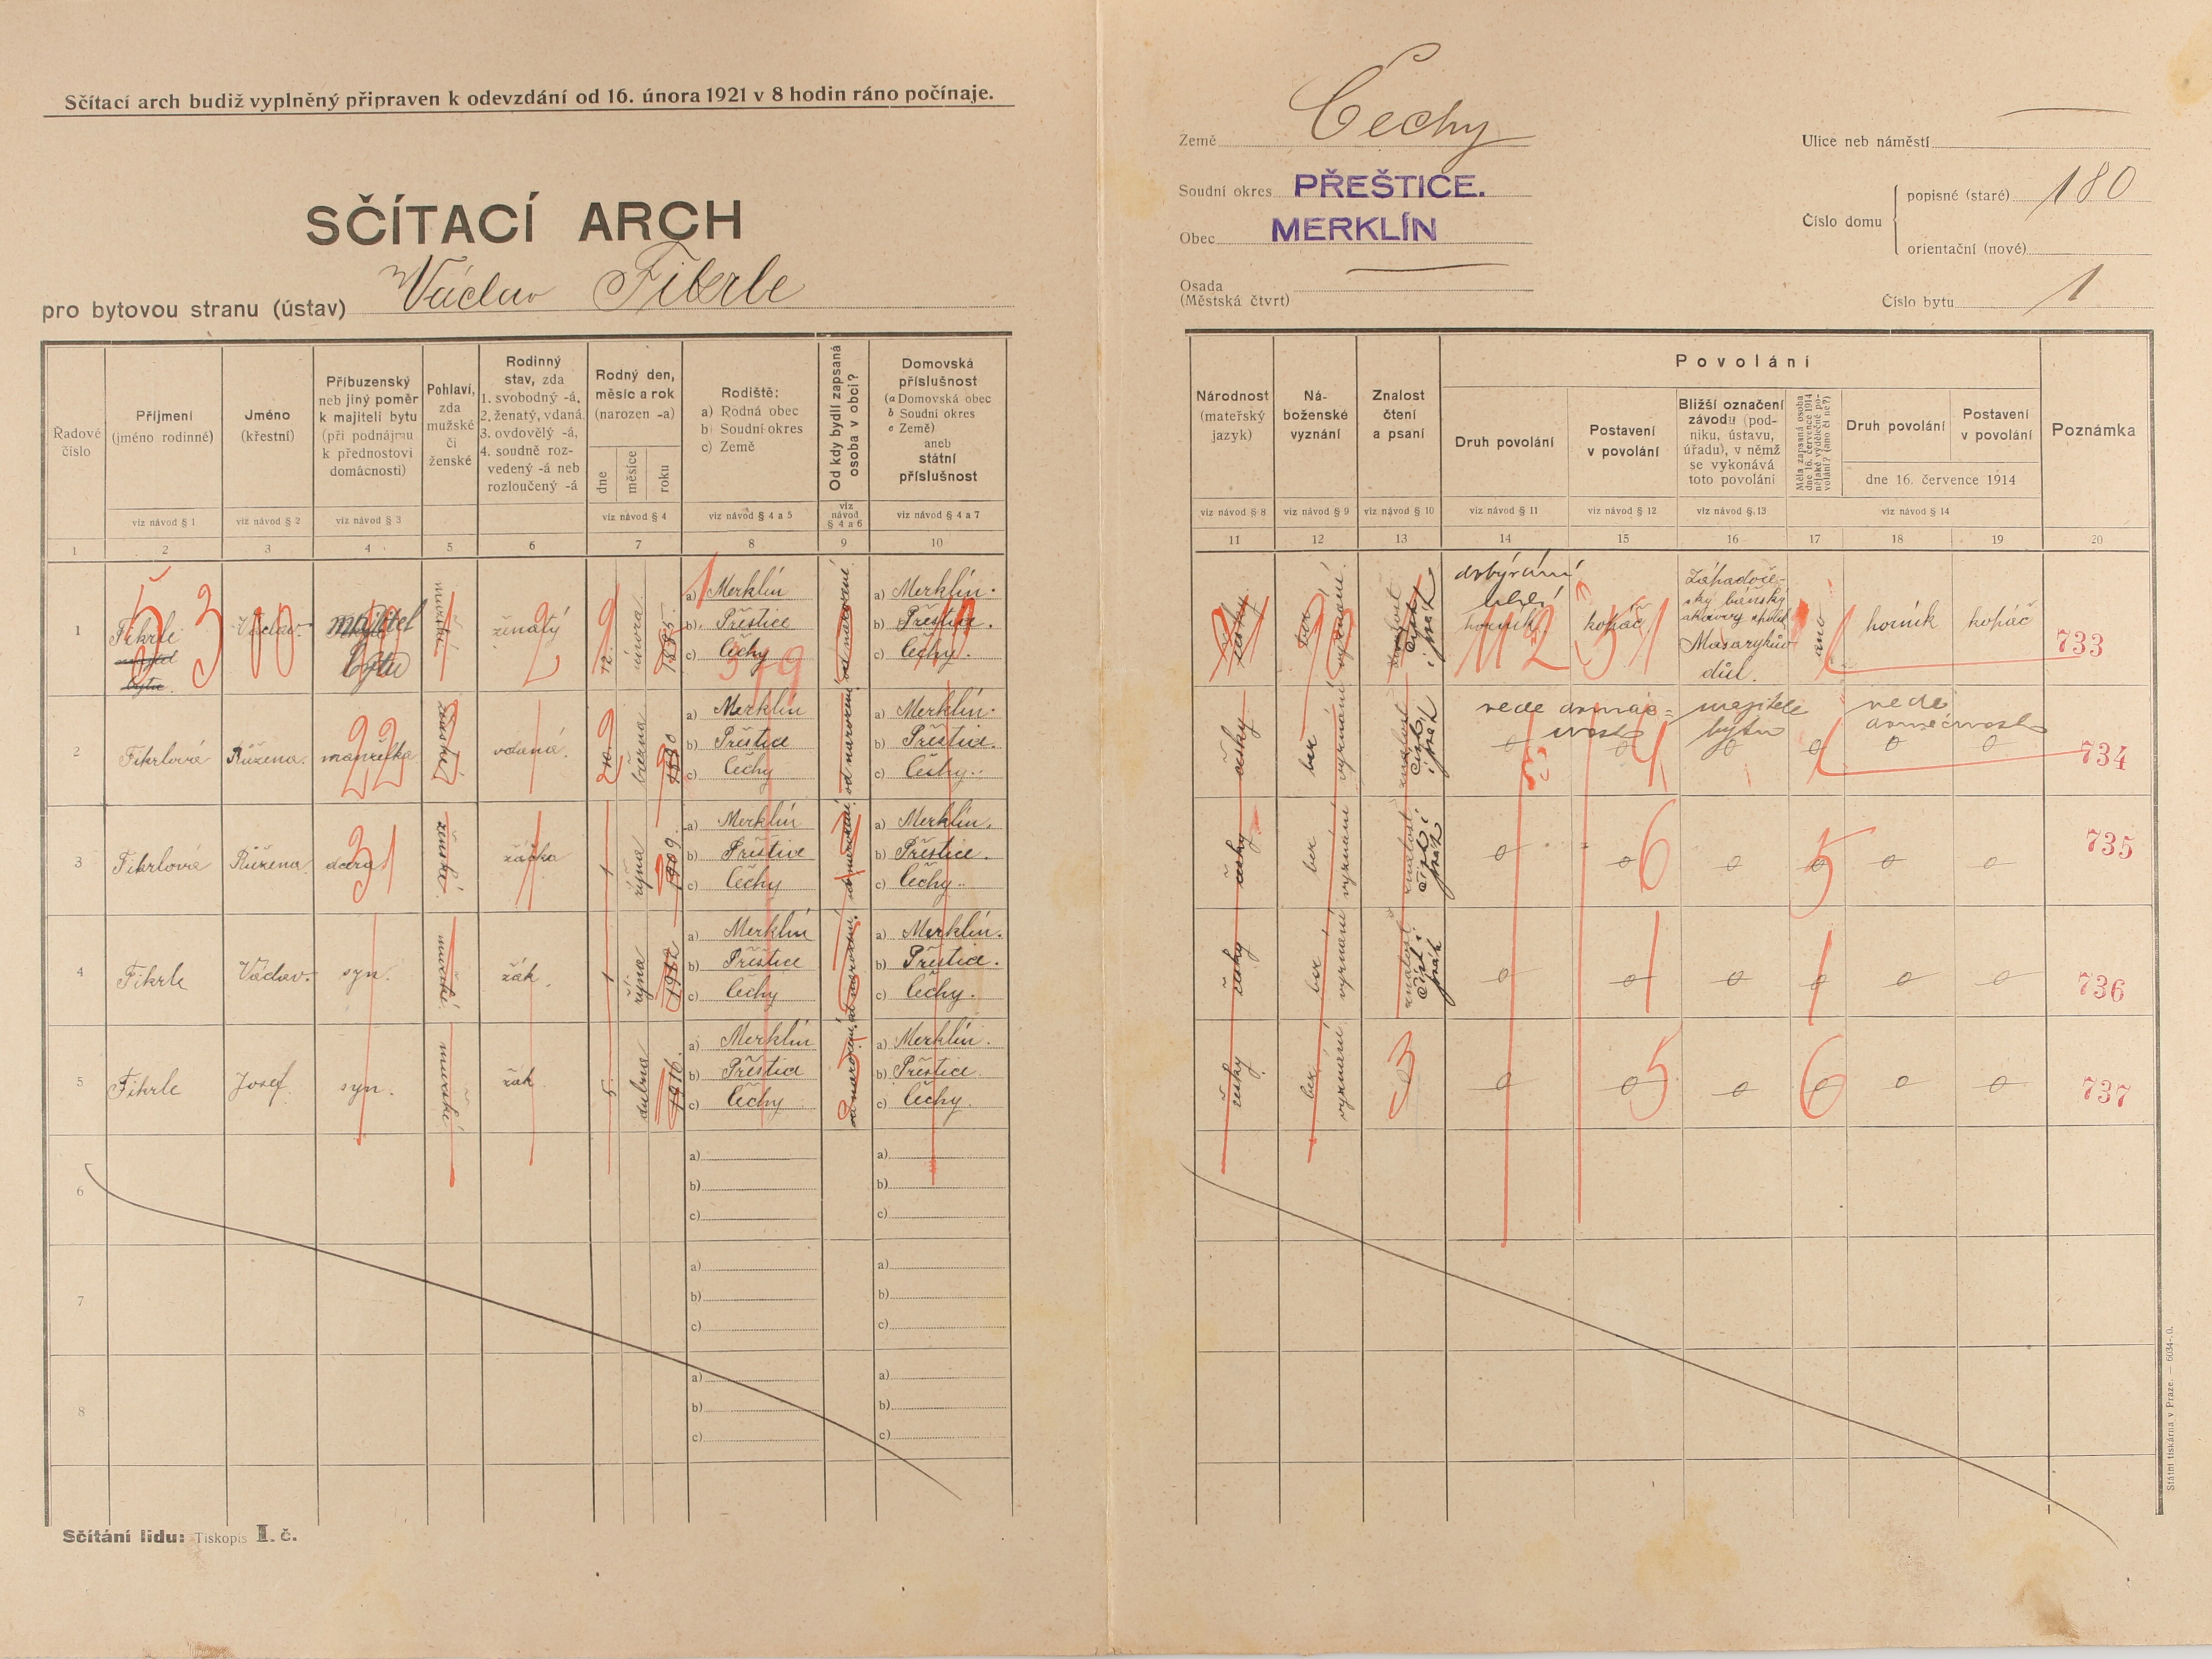 Sčítací arch budiž vyplněný připraven k odevzdání od 16. února 1921 v 8 hodin ráno počínaje.
SČÍTACÍ ARCH
pro bytovou stranu (ústav) Václav Fikrle
Země Čechy
Soudní okres PŘEŠTICE.
Obec MERKLÍN
Osada
(Městská čtvrt)
Ulice neb náměstí
Číslo domu
popisné (staré) 180
orientační (nové)
Číslo bytu 1
Řadové číslo
Příjmení (jméno rodinné)
Jméno (křestní)
Příbuzenský neb jiný poměr k majiteli bytu (při podnájmu k přednostovi domácnosti)
Pohlaví, zda mužské či ženské
Rodinný stav, zda 1. svobodný -á, 2. ženatý, vdaná, 3. ovdovělý -á, 4. soudně rozvedený -á neb rozloučený -á
Rodný den, měsíc a rok (narozen -a)
dne měsíce roku
Rodiště: a) Rodná obec b) Soudní okres c) Země
Od kdy bydlí zapsaná osoba v obci?
Domovská příslušnost (a Domovská obec b Soudní okres c Země) aneb státní příslušnost
viz návod § 1 viz návod § 2 viz návod § 3 viz návod § 4 viz návod § 4 a 5 viz návod § 4 a 6 viz návod § 4 a 7
1 2 3 4 5 6 7 8 9 10
Národnost (mateřský jazyk)
Náboženské vyznání
Znalost čtení a psaní
Povolání
Druh povolání
Postavení v povolání
Bližší označení závodu (podniku, ústavu, úřadu), v němž se vykonává toto povolání
Měla zapsaná osoba dne 16. července 1914 nějaké výdělečné povolání? (ano či ne?)
Druh povolání
Postavení v povolání
dne 16. července 1914
Poznámka
viz návod § 8 viz návod § 9 viz návod § 10 viz návod § 11 viz návod § 12 viz návod § 13 viz návod § 14
11 12 13 14 15 16 17 18 19 20
1 Fikrle Václav. majitel bytu mužské ženatý 12. února 1885.
a) Merklín
b) Přeštice
c) Čechy
od narození
a) Merklín.
b) Přeštice.
c) Čechy.
horník kopáč
Masarykův
důl.
ano horník kopáč 733
2 Fikrlová Růžena. manželka ženské vdaná. března
a) Merklín
b) Přeštice
c) Čechy
od narození
a) Merklín.
b) Přeštice.
c) Čechy.
česky bez vyznání znalost čísti i psáti
vede domácnost majitele bytu vede domácnost
0 0 0 0 0 0 734
3 Fikrlová Růžena dcera ženské. žačka 1 října 1909.
a) Merklín
b) Přeštice
c) Čechy
od narození
a) Merklín.
b) Přeštice.
c) Čechy.
česky bez vyznání znalost čísti i psáti
0 0 0 0 0 0 735
4 Fikrle Václav. syn. mužské žák. 1 října 1912
a) Merklín
b) Přeštice
c) Čechy
od narození
a) Merklín.
b) Přeštice.
c) Čechy.
česky bez vyznání znalost čísti i psáti
0 0 0 0 0 0 736
5 Fikrle Josef. syn. mužské žák. 5 dubna
a) Merklín
b) Přeštice
c) Čechy
od narození
a) Merklín.
b) Přeštice.
c) Čechy.
česky bez vyznání
0 0 0 0 0 0 737
6
a)
b)
c)
a)
b)
c)
7
a)
b)
c)
a)
b)
c)
8
a)
b)
c)
a)
b)
c)
Sčítání lidu: Tiskopis I. č.
Státní tiskárna v Praze. — 6034-.0.